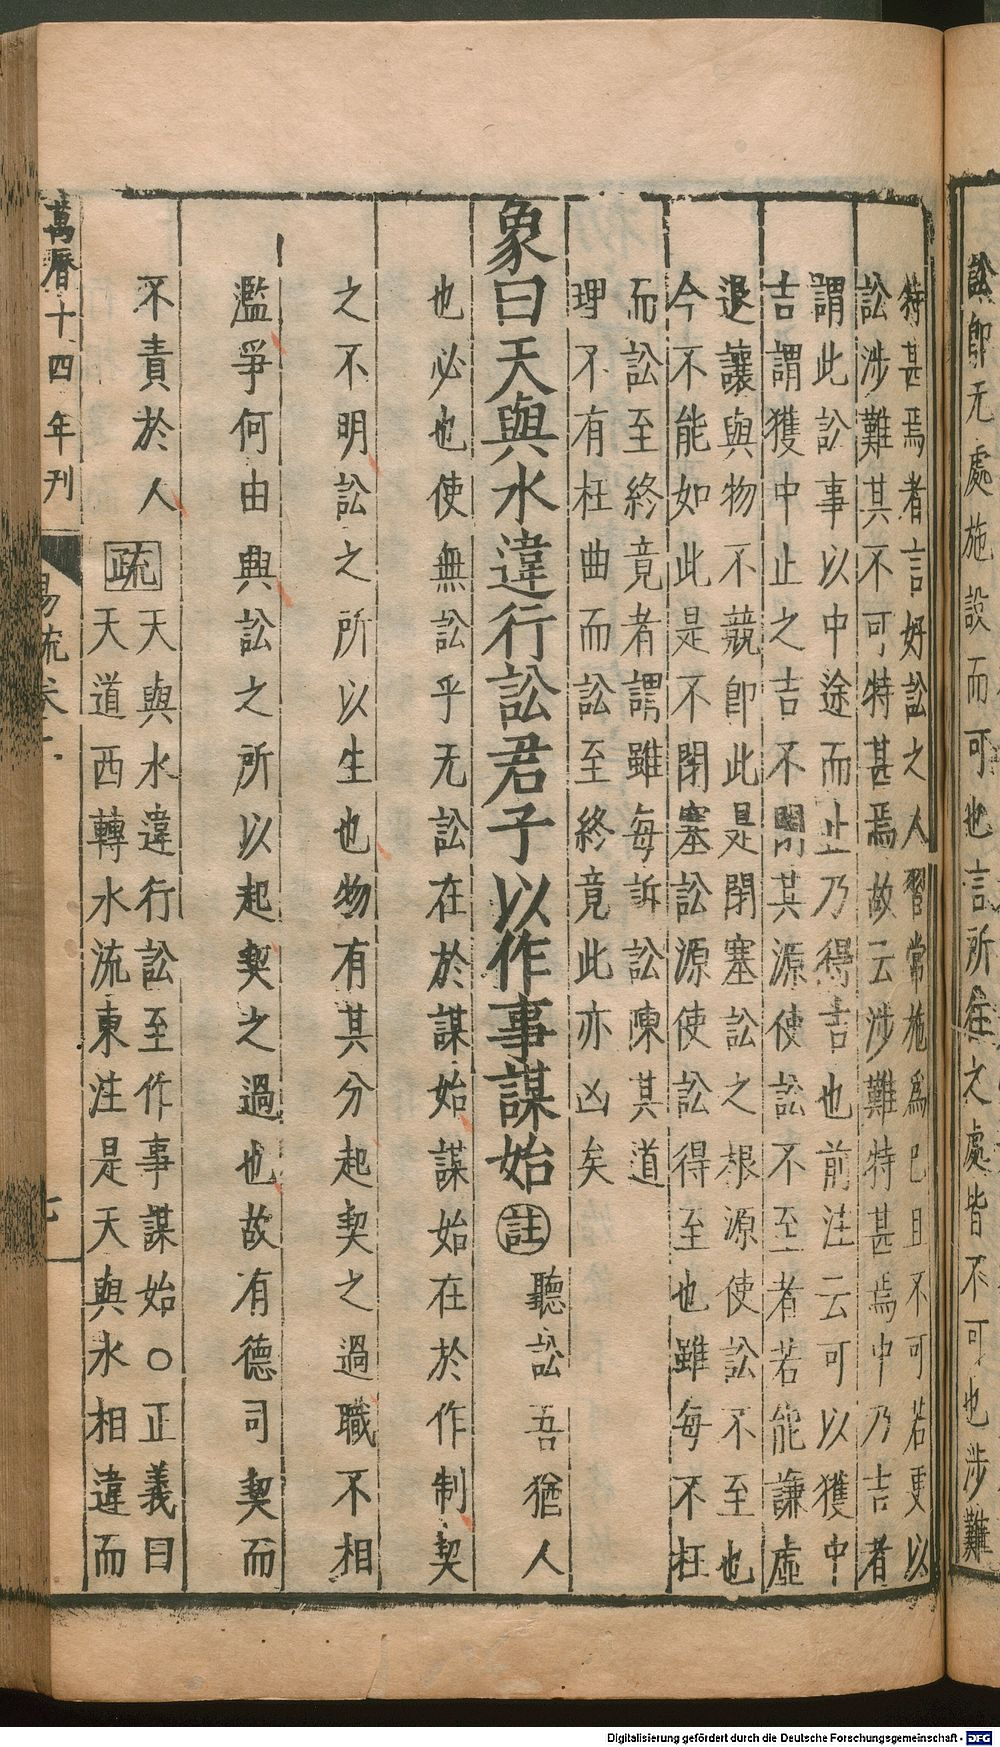 訟即无處施設而可也言所往之處皆不可也涉難
特甚焉者言好訟之人習常施爲已且不可若更以
訟涉難其不可特甚焉故云涉難特甚焉中乃吉者
謂此訟事以中途而止乃得吉也前注云可以獲中
吉謂獲中止之吉不閉其源使訟不至者若能謙虛
退讓與物不競即此是閉塞訟之根源使訟不至也
今不能如此是不閉塞訟源使訟得至也雖每不枉
而訟至終竟者謂雖每訴訟陳其道
理不有枉曲而訟至終竟此亦凶矣
象曰天與水違行訟君子以作事謀始註聽訟吾猶人
也必也使無訟乎无訟在於謀始謀始在於作制契
之不明訟之所以生也物有其分起契之過職不相
濫爭何由興訟之所以起契之過也故有德司契而
不責於人疏天與水違行訟至作事謀始○正義曰
天道西轉水流東注是天與水相違而
萬曆十四年刊
易疏卷二
七
Digitalisierung gefördert durch die Deutsche Forschungsgemeinschaft - DFG